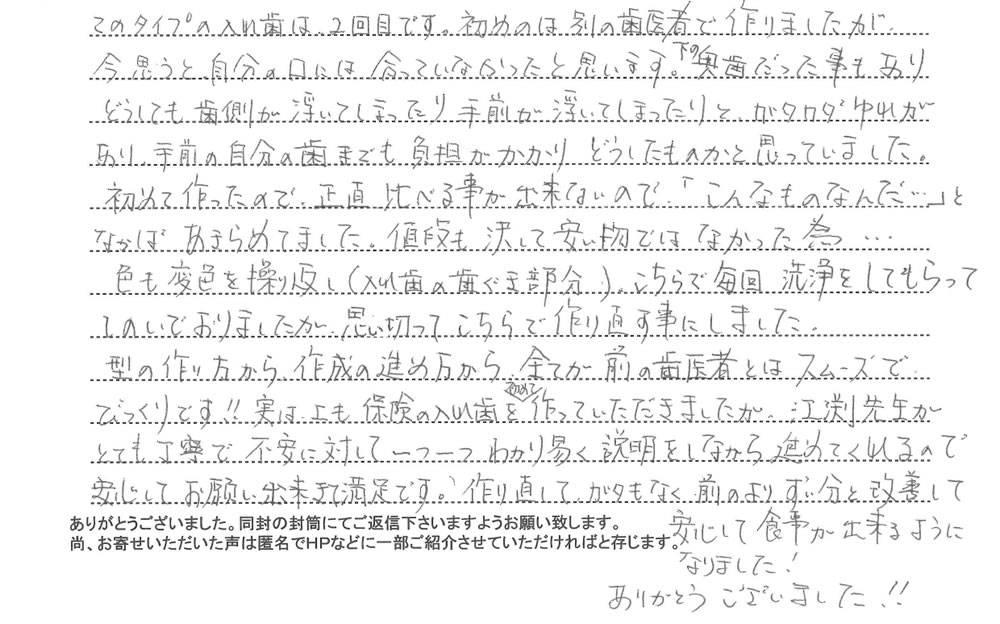 このタイプの入れ歯は、2回目です。初めのは別の歯医者で作りましたが、
今思うと、自分の口には合っていなかったと思います。下の奥歯だった事もあり
どうしても歯側が浮いてしまったり手前が浮いてしまったりと、ガタガタゆれが
あり、手前の自分の歯までも負担がかかりどうしたものかと思っていました。
初めて作ったので、正直比べる事が出来ないので、「こんなものなんだ…」と
なかばあきらめてました。値段も決して安い物ではなかった為…
色も変色を繰り返し(入れ歯の歯ぐき部分)。こちらで毎回洗浄をしてもらって
しのいでおりましたが、思い切ってこちらで作り直す事にしました。
型の作り方から、作成の進め方から、全てが前の歯医者とはスムーズで
びっくりです!!実は上も保険の入れ歯を初めて作っていただきましたが、江渕先生が
とても丁寧で不安に対して一つ一つわかり易く説明をしながら進めてくれるので
安心してお願い出来て満足です。作り直して、ガタもなく前のよりずい分と改善して
安心して食事が出来るように
なりました!
ありがとうございました!!
ありがとうございました。同封の封筒にてご返信下さいますようお願い致します。
尚、お寄せいただいた声は匿名でHPなどに一部ご紹介させていただければと存じます。